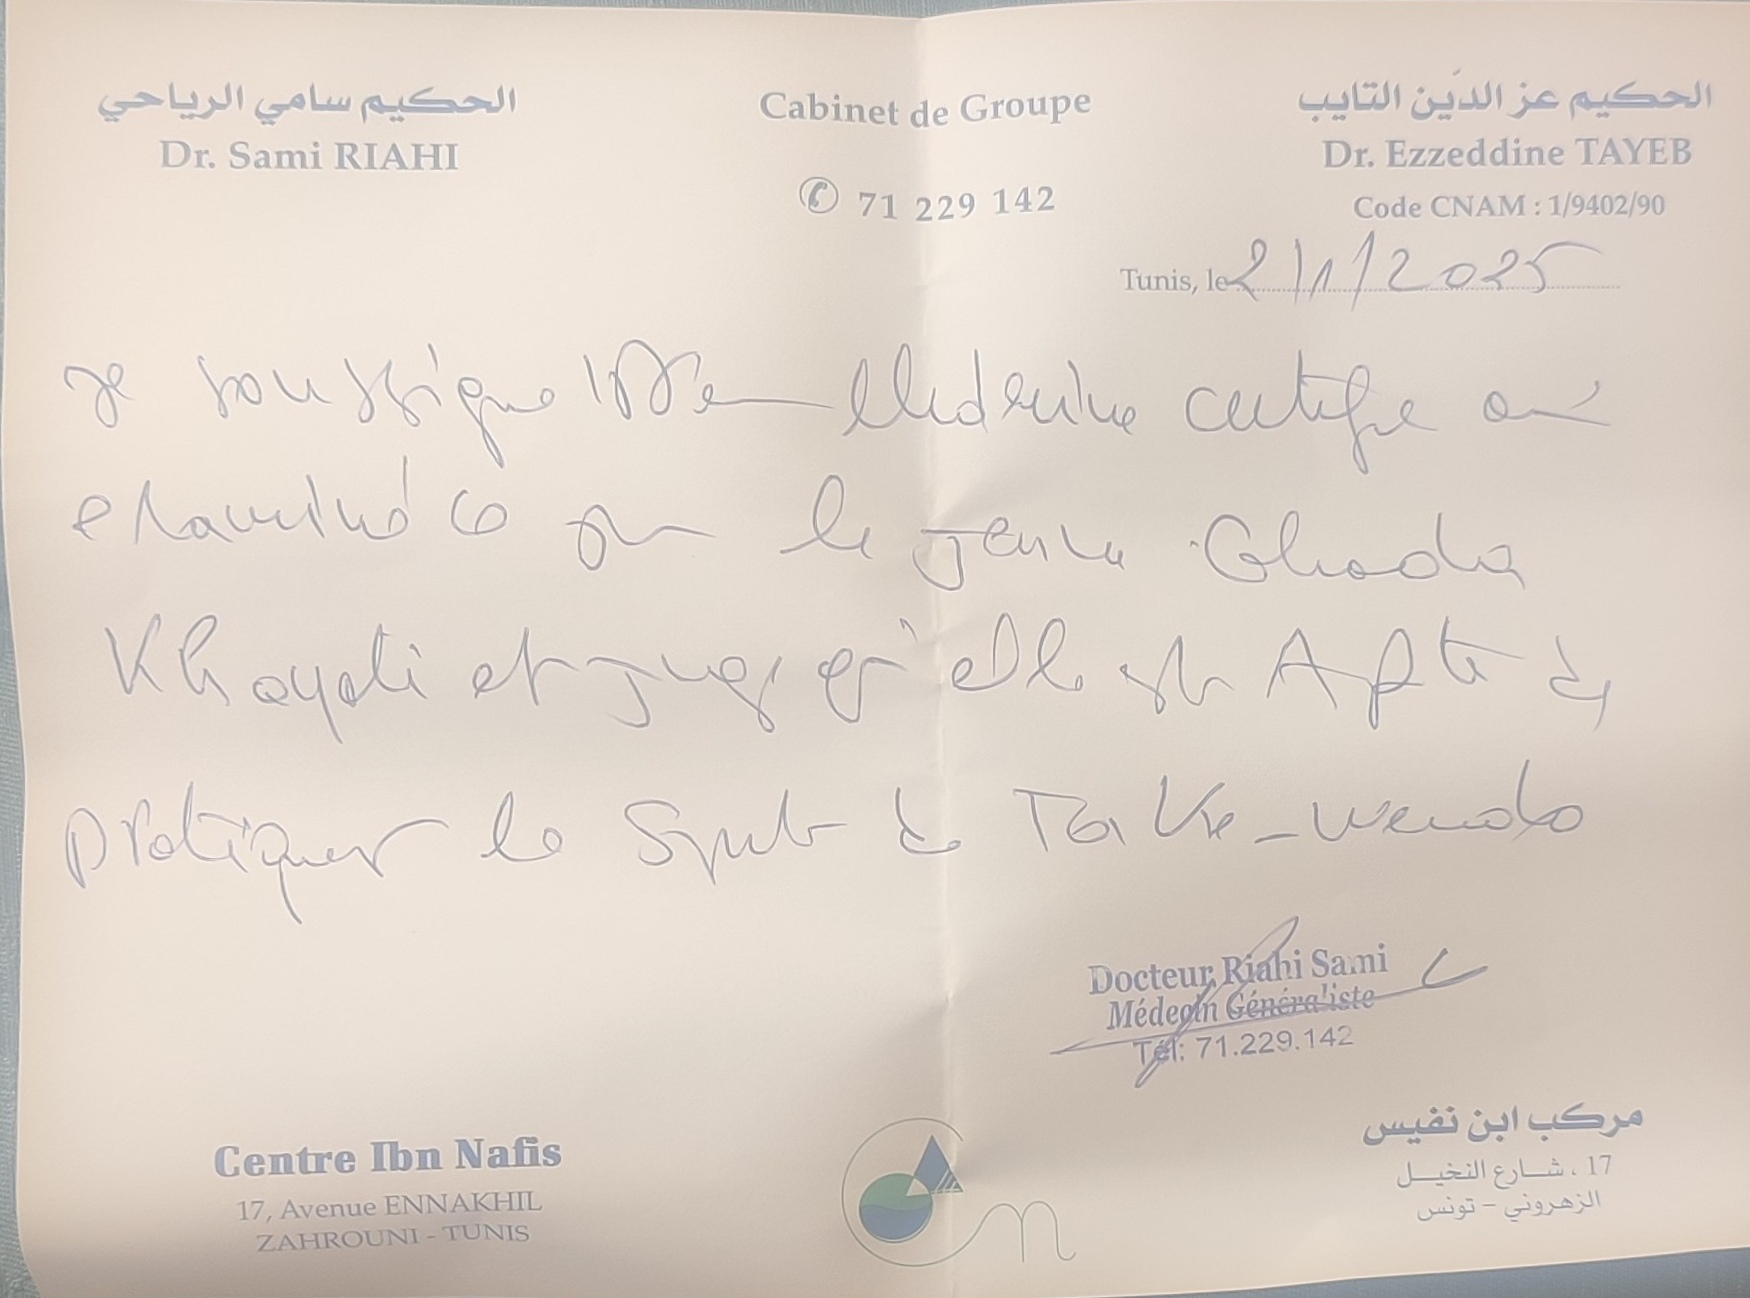 الحكيم سامي الرياحي
Dr. Sami RIAHI
Cabinet de Groupe
71 229 142
الحكيم عز الدّين التايب
Dr. Ezzeddine TAYEB
Code CNAM : 1/9402/90
Tunis, le 2/1/2025
Je soussigné certifie avoir
examiné ce jour la jeune Ghada
Khayati et juge qu'elle est Apte à
pratiquer le Sport de Taike-wendo
Docteur Riahi Sami
Médecin Généraliste
Tél: 71.229.142
Centre Ibn Nafis
17, Avenue ENNAKHIL
ZAHROUNI - TUNIS
مركب ابن نفيس
17 ، شارع النخيل
الزهروني - تونس